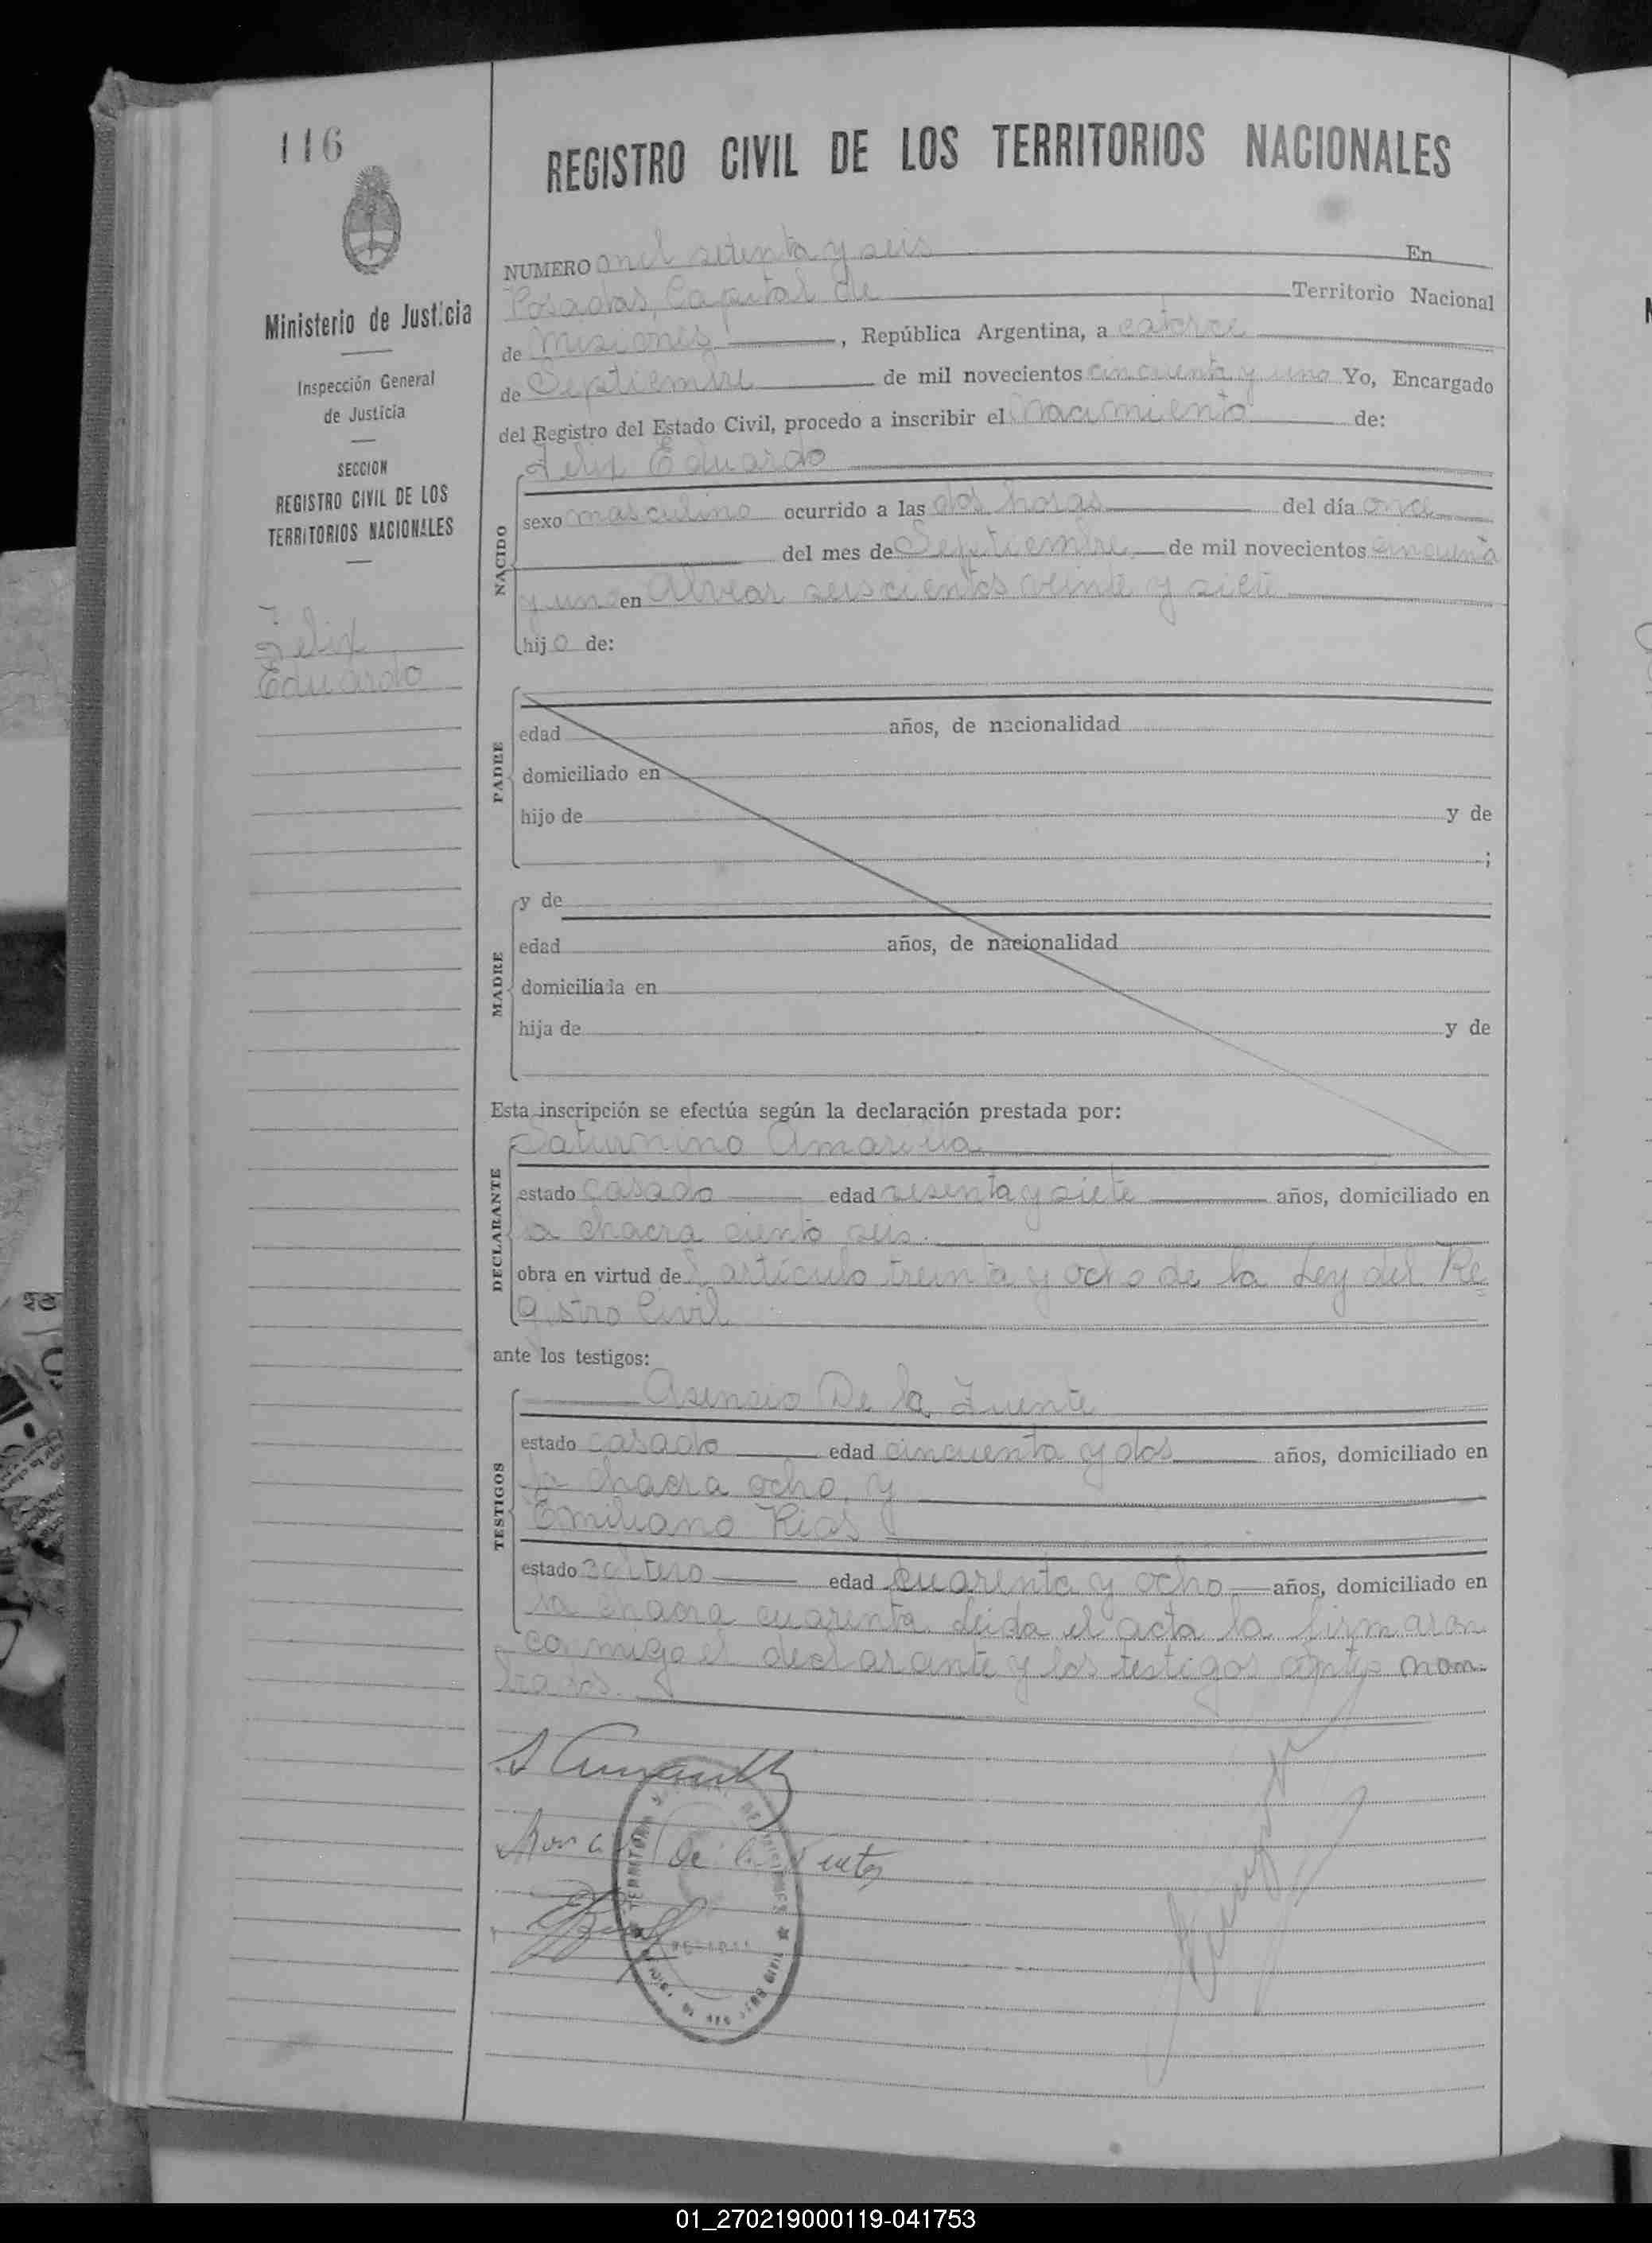 116
REGISTRO CIVIL DE LOS TERRITORIOS NACIONALES
Ministerio de Justicia
Inspección General
de Justicia
SECCION
REGISTRO CIVIL DE LOS
TERRITORIOS NACIONALES
Felix
Eduardo
NUMERO mil setenta y seis En
Posadas, Capital de Territorio Nacional
de Misiones, República Argentina, a catorce
de Septiembre de mil novecientos cincuenta y uno Yo, Encargado
del Registro del Estado Civil, procedo a inscribir el nacimiento de:
NACIDO
Felix Eduardo
sexo masculino ocurrido a las dos horas del día once
del mes de Septiembre de mil novecientos cincuenta
y uno en Alvear seiscientos veinte y siete
hijo de:
PADRE
edad años, de nacionalidad
domiciliado en
hijo de y de
;
MADRE
y de
edad años, de nacionalidad
domiciliada en
hija de y de
Esta inscripción se efectúa según la declaración prestada por:
DECLARANTE
Saturnino Amarilla
estado casado edad sesenta y siete años, domiciliado en
la chacra ciento seis.
obra en virtud del artículo treinta y ocho de la Ley del Re
gistro Civil
ante los testigos:
TESTIGOS
Asensio De la Fuente
estado casado edad cincuenta y dos años, domiciliado en
la chacra ocho, y
Emiliano Rios
estado soltero edad cuarenta y ocho años, domiciliado en
la chacra cuarenta. Leida el acta la firmaron
conmigo el declarante y los testigos antes nom-
brados.
De la
01_270219000119-041753